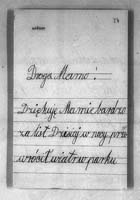 Droga Mamo!
Dziękuję Mamie bardzo
za list Dzisiaj w nocy prze
wrócił wiatr w parku